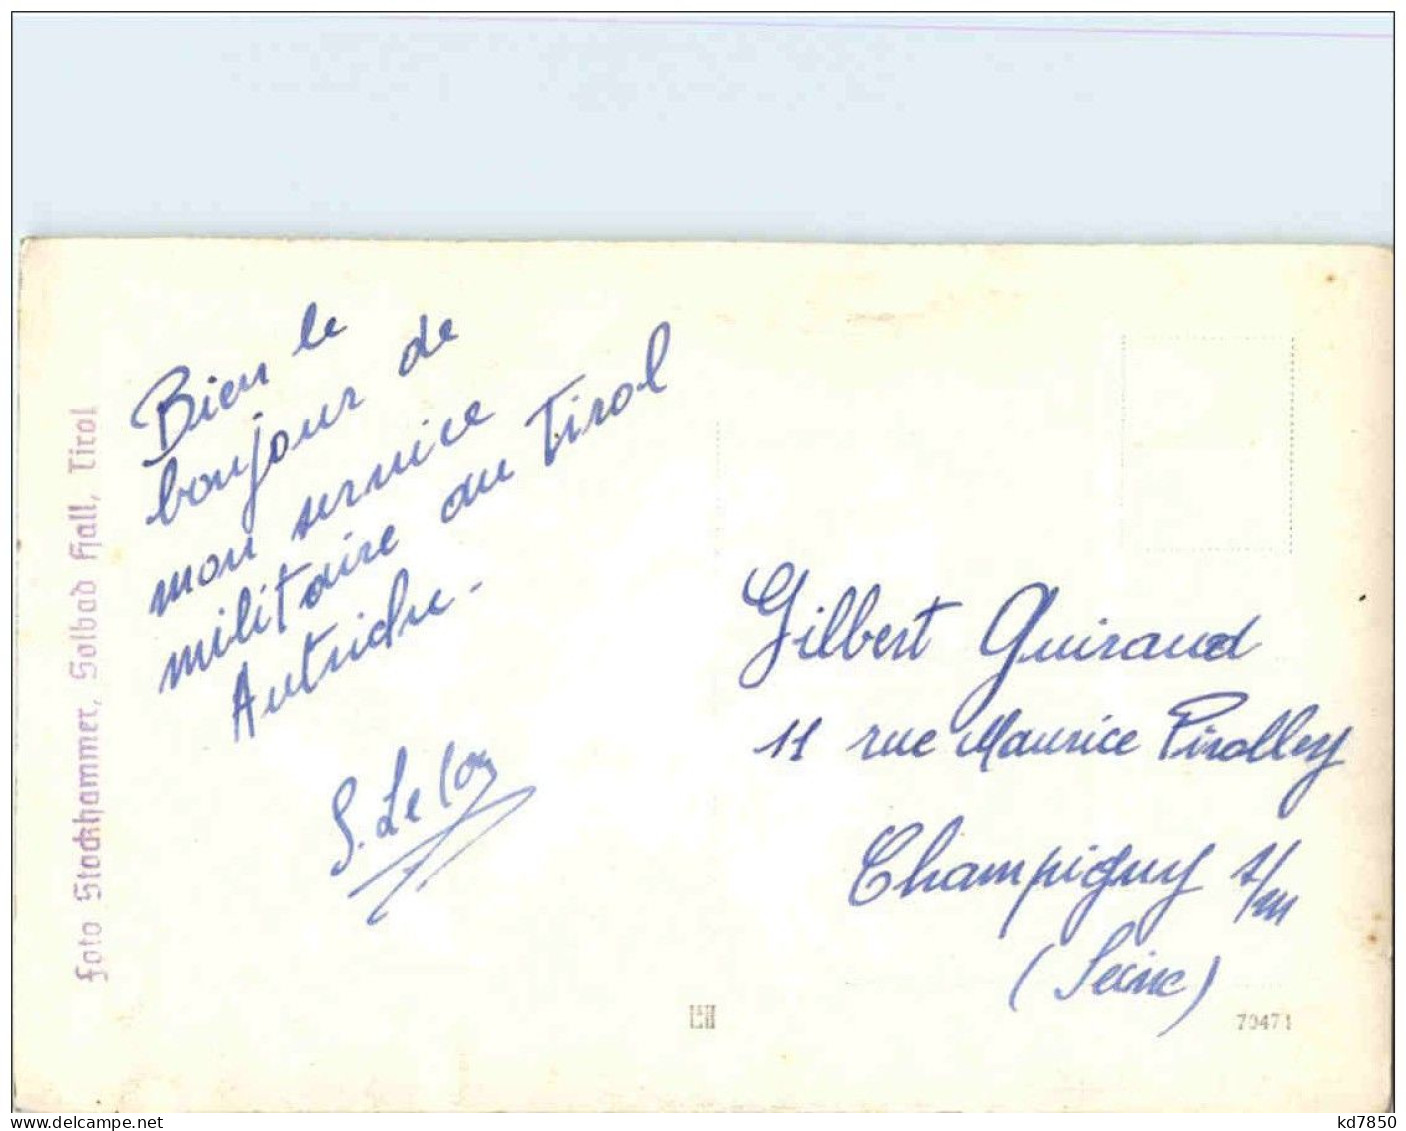 Foto Stockhammer, Solbad Hall, Tirol
Bien le
bonjour de
mon service
militaire au Tirol
Autriche -
S. Leloy
Gilbert Guiraud
11 rue Maurice Pirolley
Champigny s/m
(Seine)
79471
kd7850